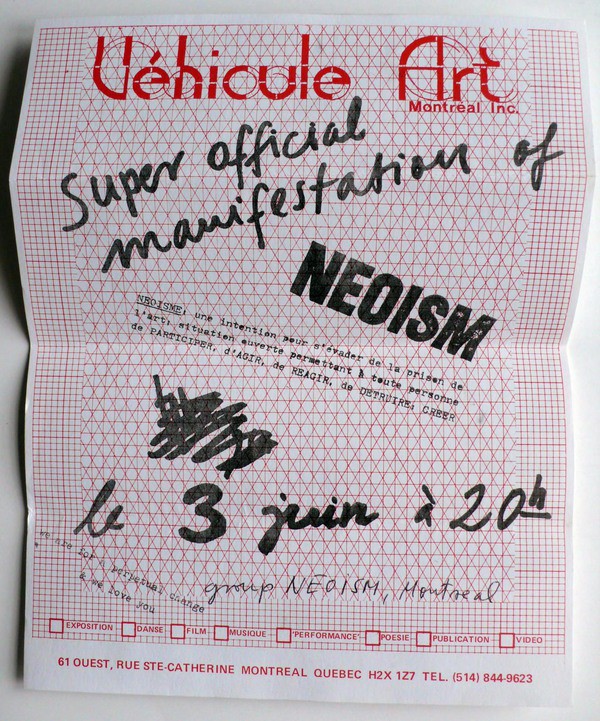 Véhicule Art
Montréal Inc.
Super official
manifestation of
NEOISM
NEOISME; une intention pour s'évader de la prison de
l'art; situation ouverte permettant à toute personne
de PARTICIPER, d'AGIR, de REAGIR, de DETRUIRE; CREER
le 3 juin à 20h
we are for a perpetual change
& we love you
group NEOISM, Montreal
EXPOSITION DANSE FILM MUSIQUE 'PERFORMANCE' POESIE PUBLICATION VIDEO
61 OUEST, RUE STE-CATHERINE MONTREAL QUEBEC H2X 1Z7 TEL. (514) 844-9623